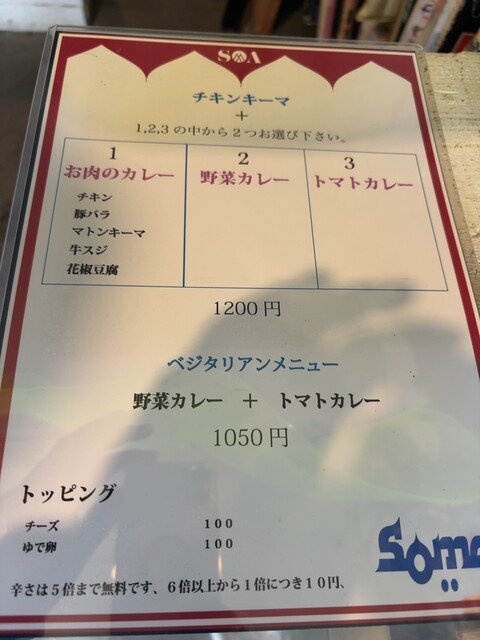 チキンキーマ
+
1,2,3の中から2つお選び下さい。
1
お肉のカレー
チキン
豚バラ
マトンキーマ
牛スジ
花椒豆腐
2
野菜カレー
3
トマトカレー
1200円
ベジタリアンメニュー
野菜カレー + トマトカレー
1050円
トッピング
チーズ 100
ゆで卵 100
辛さは5倍まで無料です、6倍以上から1倍につき10円、